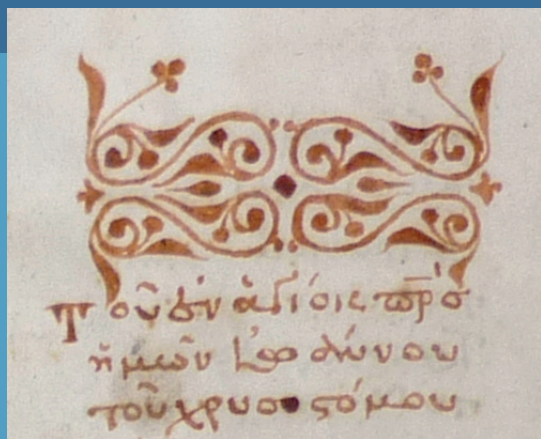 Τοῦ ἐν ἁγίοις πρ̅ς
ἡμῶν Ἰω άννου
τοῦ χρυσοστόμου